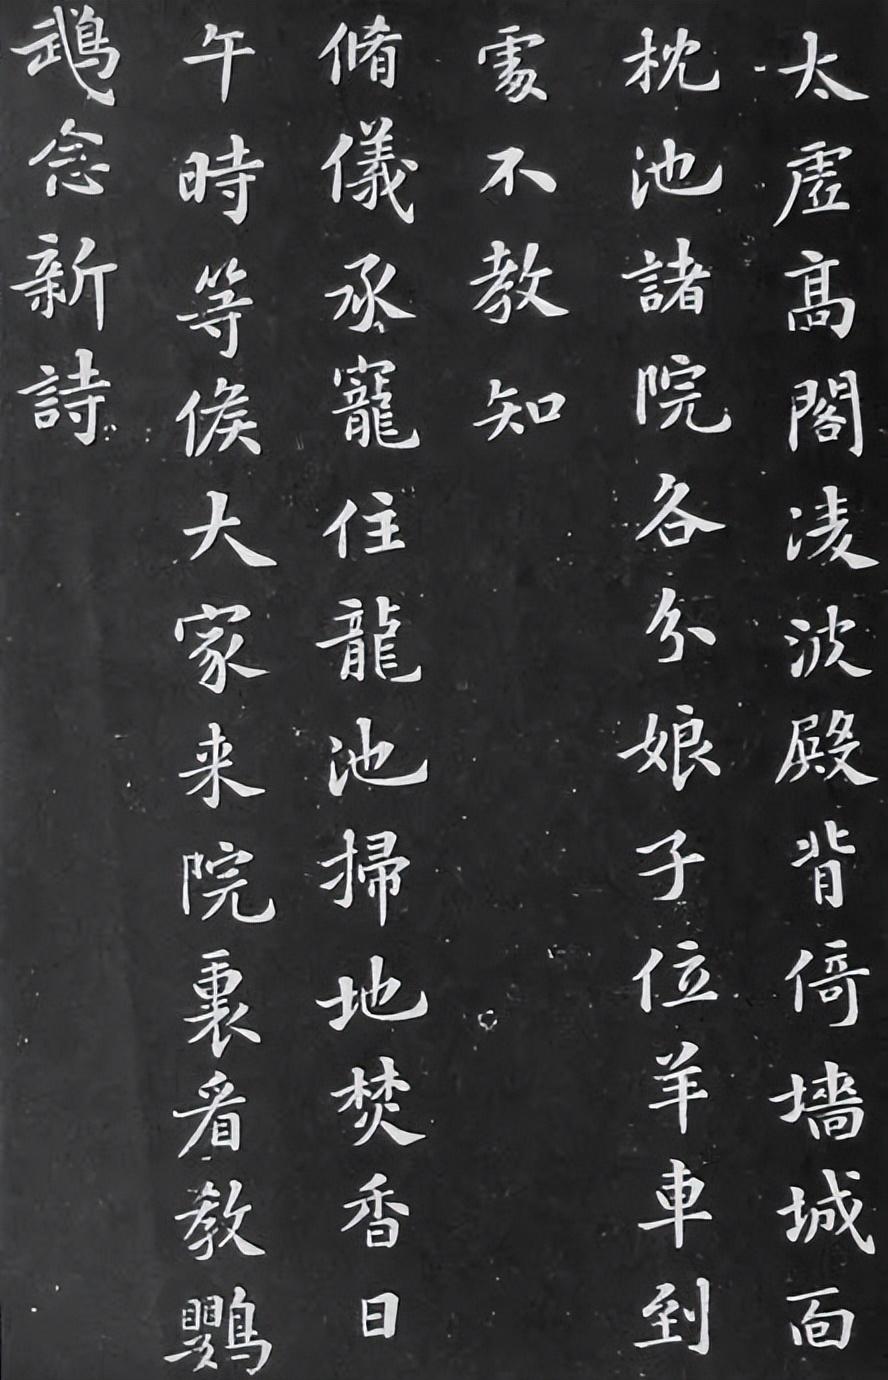 太虛高閣淩波殿背倚墻城面
枕池諸院各分娘子位羊車到
處不教知
脩儀承寵住龍池掃地焚香日
午時等候大家来院裏看教鸚
鵡念新詩